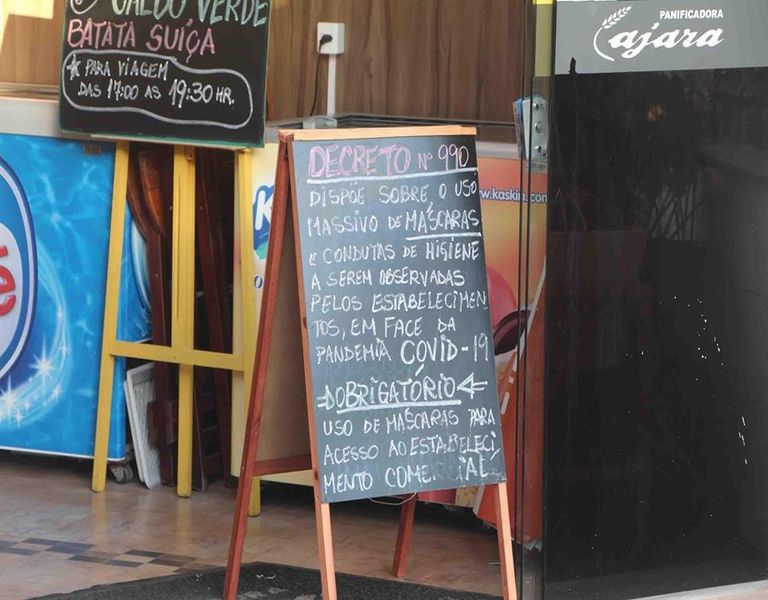 CALDO VERDE
BATATA SUIÇA
PARA VIAGEM
DAS 17:00 AS 19:30 HR.
PANIFICADORA
ajara
DECRETO Nº 990
DISPÕE SOBRE O USO
MASSIVO DE MÁSCARAS
E CONDUTAS DE HIGIENE
A SEREM OBSERVADAS
PELOS ESTABELECIMEN
TOS, EM FACE DA
PANDEMIA COVID-19
OBRIGATÓRIO
USO DE MÁSCARAS PARA
ACESSO AO ESTABELECI
MENTO COMERCIAL
www.kaskin.com